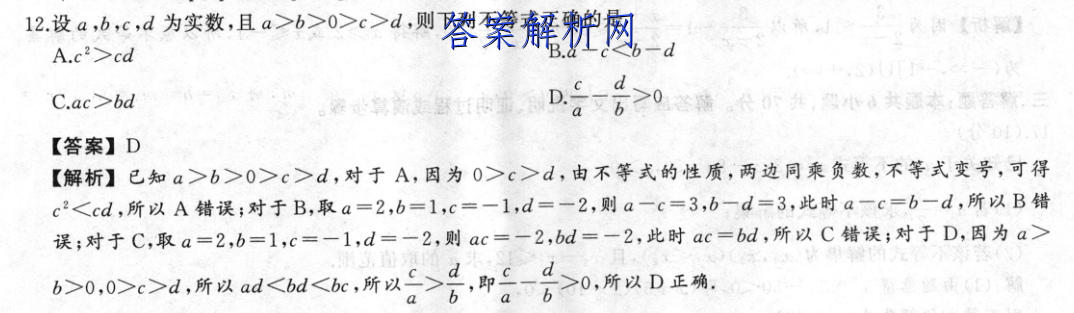 12.设a,b,c,d为实数,且a>b>0>c>d,则下列不等式正确的是
答案解析网
A.c²>cd B.a-c<b-d
C.ac>bd D.c/a-d/b>0
【答案】D
【解析】已知a>b>0>c>d,对于A,因为0>c>d,由不等式的性质,两边同乘负数,不等式变号,可得
c²<cd,所以A错误;对于B,取a=2,b=1,c=-1,d=-2,则a-c=3,b-d=3,此时a-c=b-d,所以B错
误;对于C,取a=2,b=1,c=-1,d=-2,则ac=-2,bd=-2,此时ac=bd,所以C错误;对于D,因为a>
b>0,0>c>d,所以ad<bd<bc,所以c/a>d/b,即c/a-d/b>0,所以D正确.